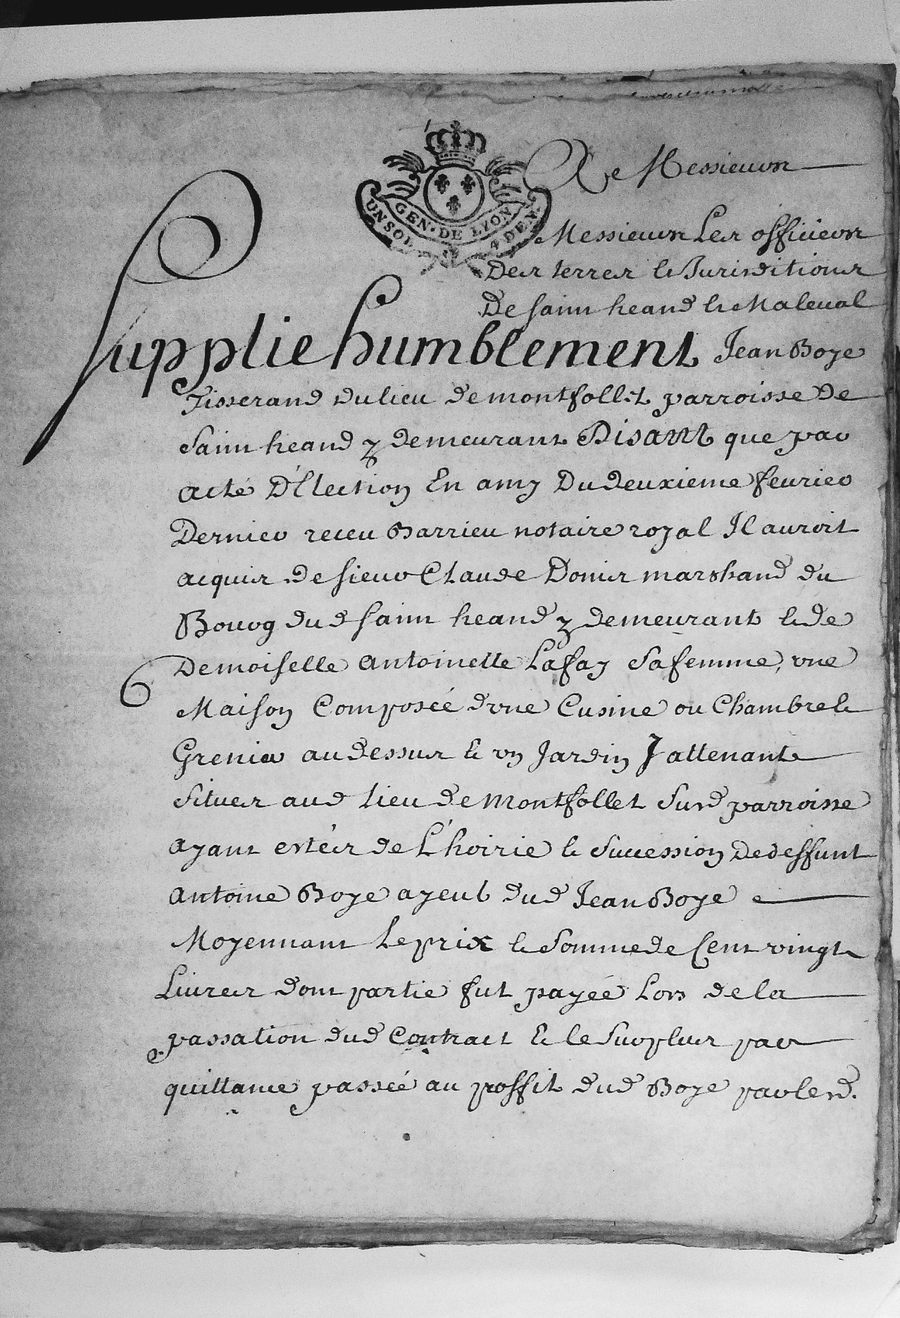 GEN · DE LYON
UN SOL 4 DEN.
A Messieurs
Messieurs Les officiers
Des terres & Jurisditions
De sainr heand & Maleval
Supplie humblement Jean Boye
Tisserand du lieu de montfollet parroisse de
Sainr heand y demeurant Disant que par
acte D'Election En amy Du deuxieme fevrier
Dernier receu Barrieu notaire royal Il auroit
acquis de sieur Claude Donis marchand du
Bourg dud sainr heand y demeurant & de
Demoiselle Antoinette Lafay sa femme, une
Maison Composée d'une Cusine ou Chambre &
Grenier au dessus & un Jardin J attenant
Situés aud lieu de montfollet Susd parroisse
ayant estées de L'hoirie & Succession De deffunt
Antoine Boye ayeul dud Jean Boye
Moyennant Le prix & Somme de Cent vingt
Livres dont partie fut payée Lors de la
passation dud Contract & le Surplus par
quittance passée au proffit dud Boye par led.